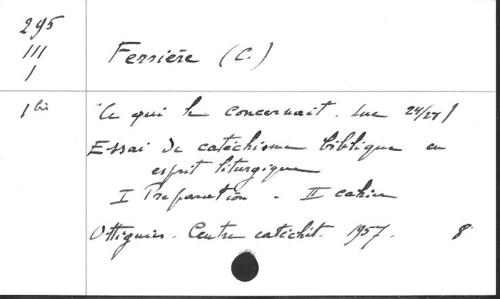 295
III
1
Ferrière (C.)
1 bis
"Ce qui le concernait. Luc 24/27
Essai de catéchisme biblique en
esprit liturgique
I Preparation - II cahier
Ottignies. Centre catéchit. 1957. 8°